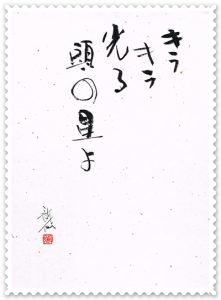 キラ
キラ
光る
頭の星よ